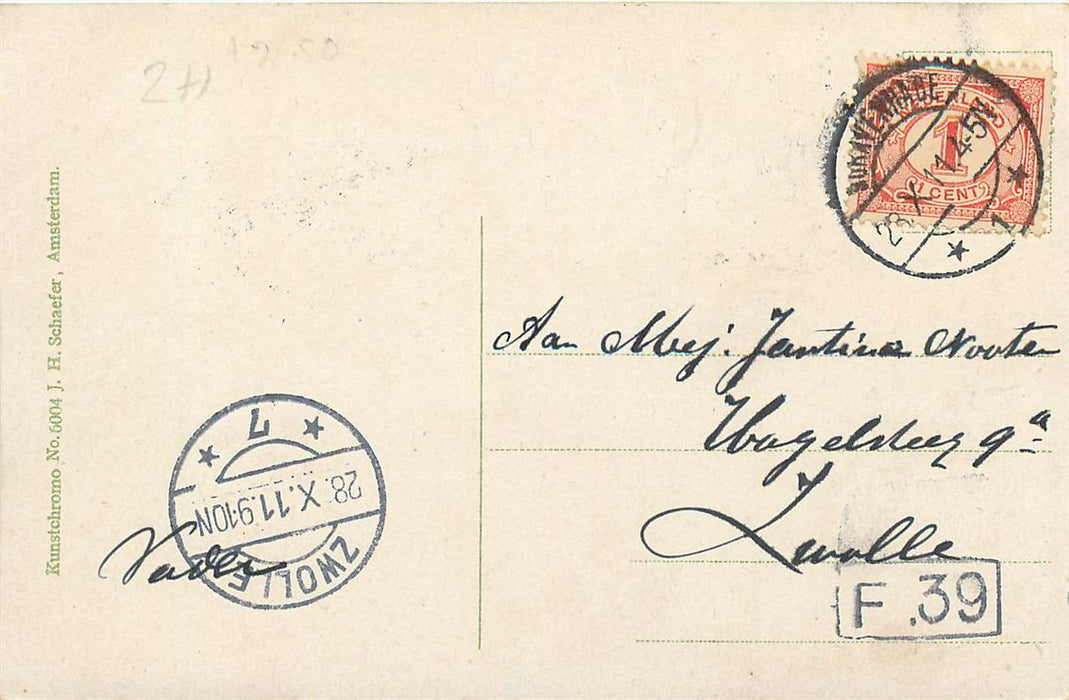 12.50
2H
NEDERLAND
1
1 CENT
'S GRAVENHAGE
28 X 11.4-5N
1
Aan Mej. Jantina Nooten
9a
Zwolle
F.39
7
28.X.11.9-10N
ZWOLLE
Vader
Kunstchromo No. 6004 J. H. Schaefer, Amsterdam.